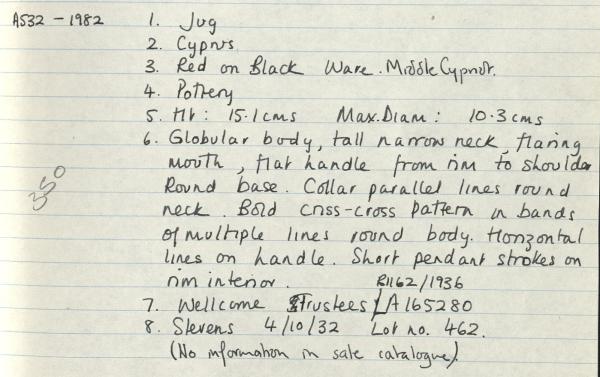 A532 - 1982
1. Jug
2. Cyprus
3. Red on Black Ware. Middle Cypriot.
4. Pottery
5. Ht: 15.1cms Max.Diam: 10.3cms
6. Globular body, tall narrow neck, flaring
mouth, flat handle from rim to shoulder
Round base. Collar parallel lines round
neck. Bold criss-cross pattern in bands
of multiple lines round body. Horizontal
lines on handle. Short pendant strokes on
rim interior.
350
R1162/1936
7. Wellcome Trustees / A165280
8. Stevens 4/10/32 Lot no. 462.
(No information in sale catalogue).